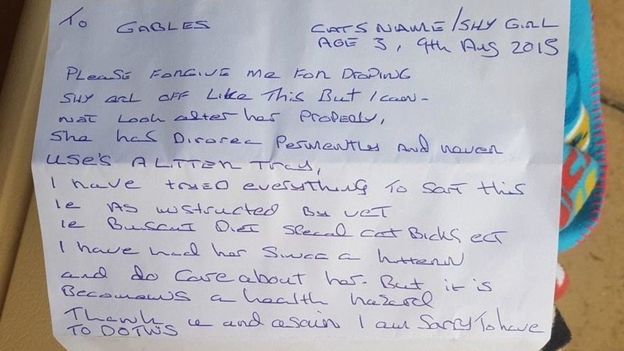 To GABLES CATS NAME/SHY GIRL
AGE 3, 9th Aug 2015
PLEASE FORGIVE ME FOR DROPING
SHY GRL OFF LIKE THIS BUT I CAN-
NOT LOOK after her PROPERLY,
She has DIROREA PERMENTLY AND NEVER
USE'S A LITTEN TRAY,
I have TRYED everyTHING TO SORT THIS
IE AS INSTRUCTED BY VET
IE BUSCUIT DIET SPECAL CAT BICKS ECT
I have had her SINCE A KITTEN
and do Care about her. But it is
BECOMEING a health hazard
Thank U and again I am Sorry To have
TO DO THIS